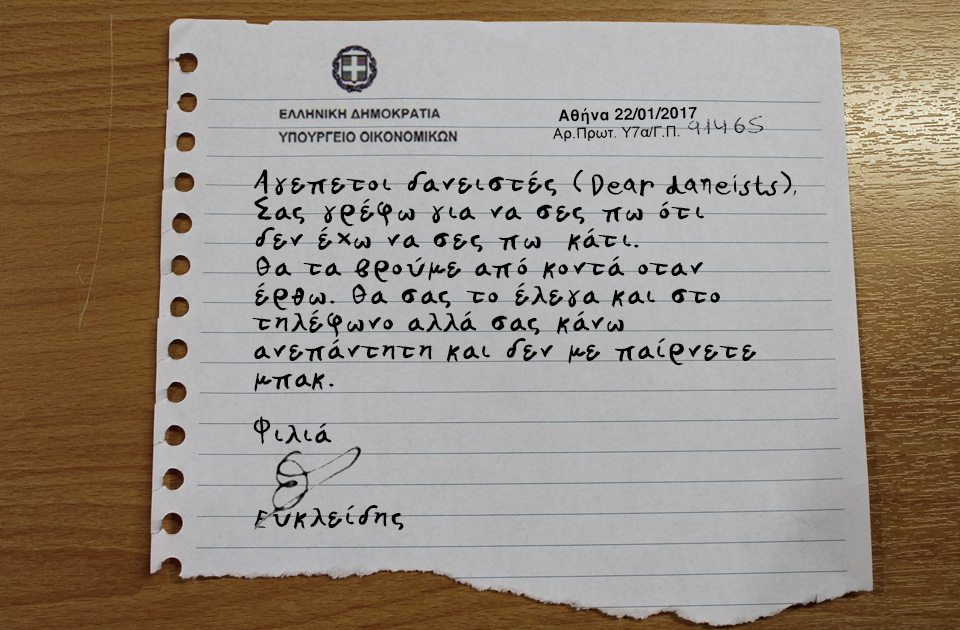 ΕΛΛΗΝΙΚΗ ΔΗΜΟΚΡΑΤΙΑ
ΥΠΟΥΡΓΕΙΟ ΟΙΚΟΝΟΜΙΚΩΝ
Αθήνα 22/01/2017
Αρ.Πρωτ. Υ7α/Γ.Π. 91465
Αγεπετοι δανειστές (Dear daneists),
Σας γρέφω για να σες πω ότι
δεν έχω να σες πω κάτι.
Θα τα βρούμε από κοντά οταν
έρθω. Θα σας το έλεγα και στο
τηλέφωνο αλλά σας κάνω
ανεπάντητη και δεν με παίρνετε
μπακ.
Φιλιά
Ευκλείδης